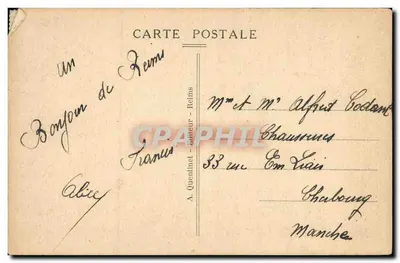 CARTE POSTALE
Un
Bonjour de Reims
Francis
Alice
A. Quentinet - Editeur - Reims
CPAPHIL
Mme et Mr Alfred Godard
Chaussures
33 rue Em Liais
Cherbourg
Manche